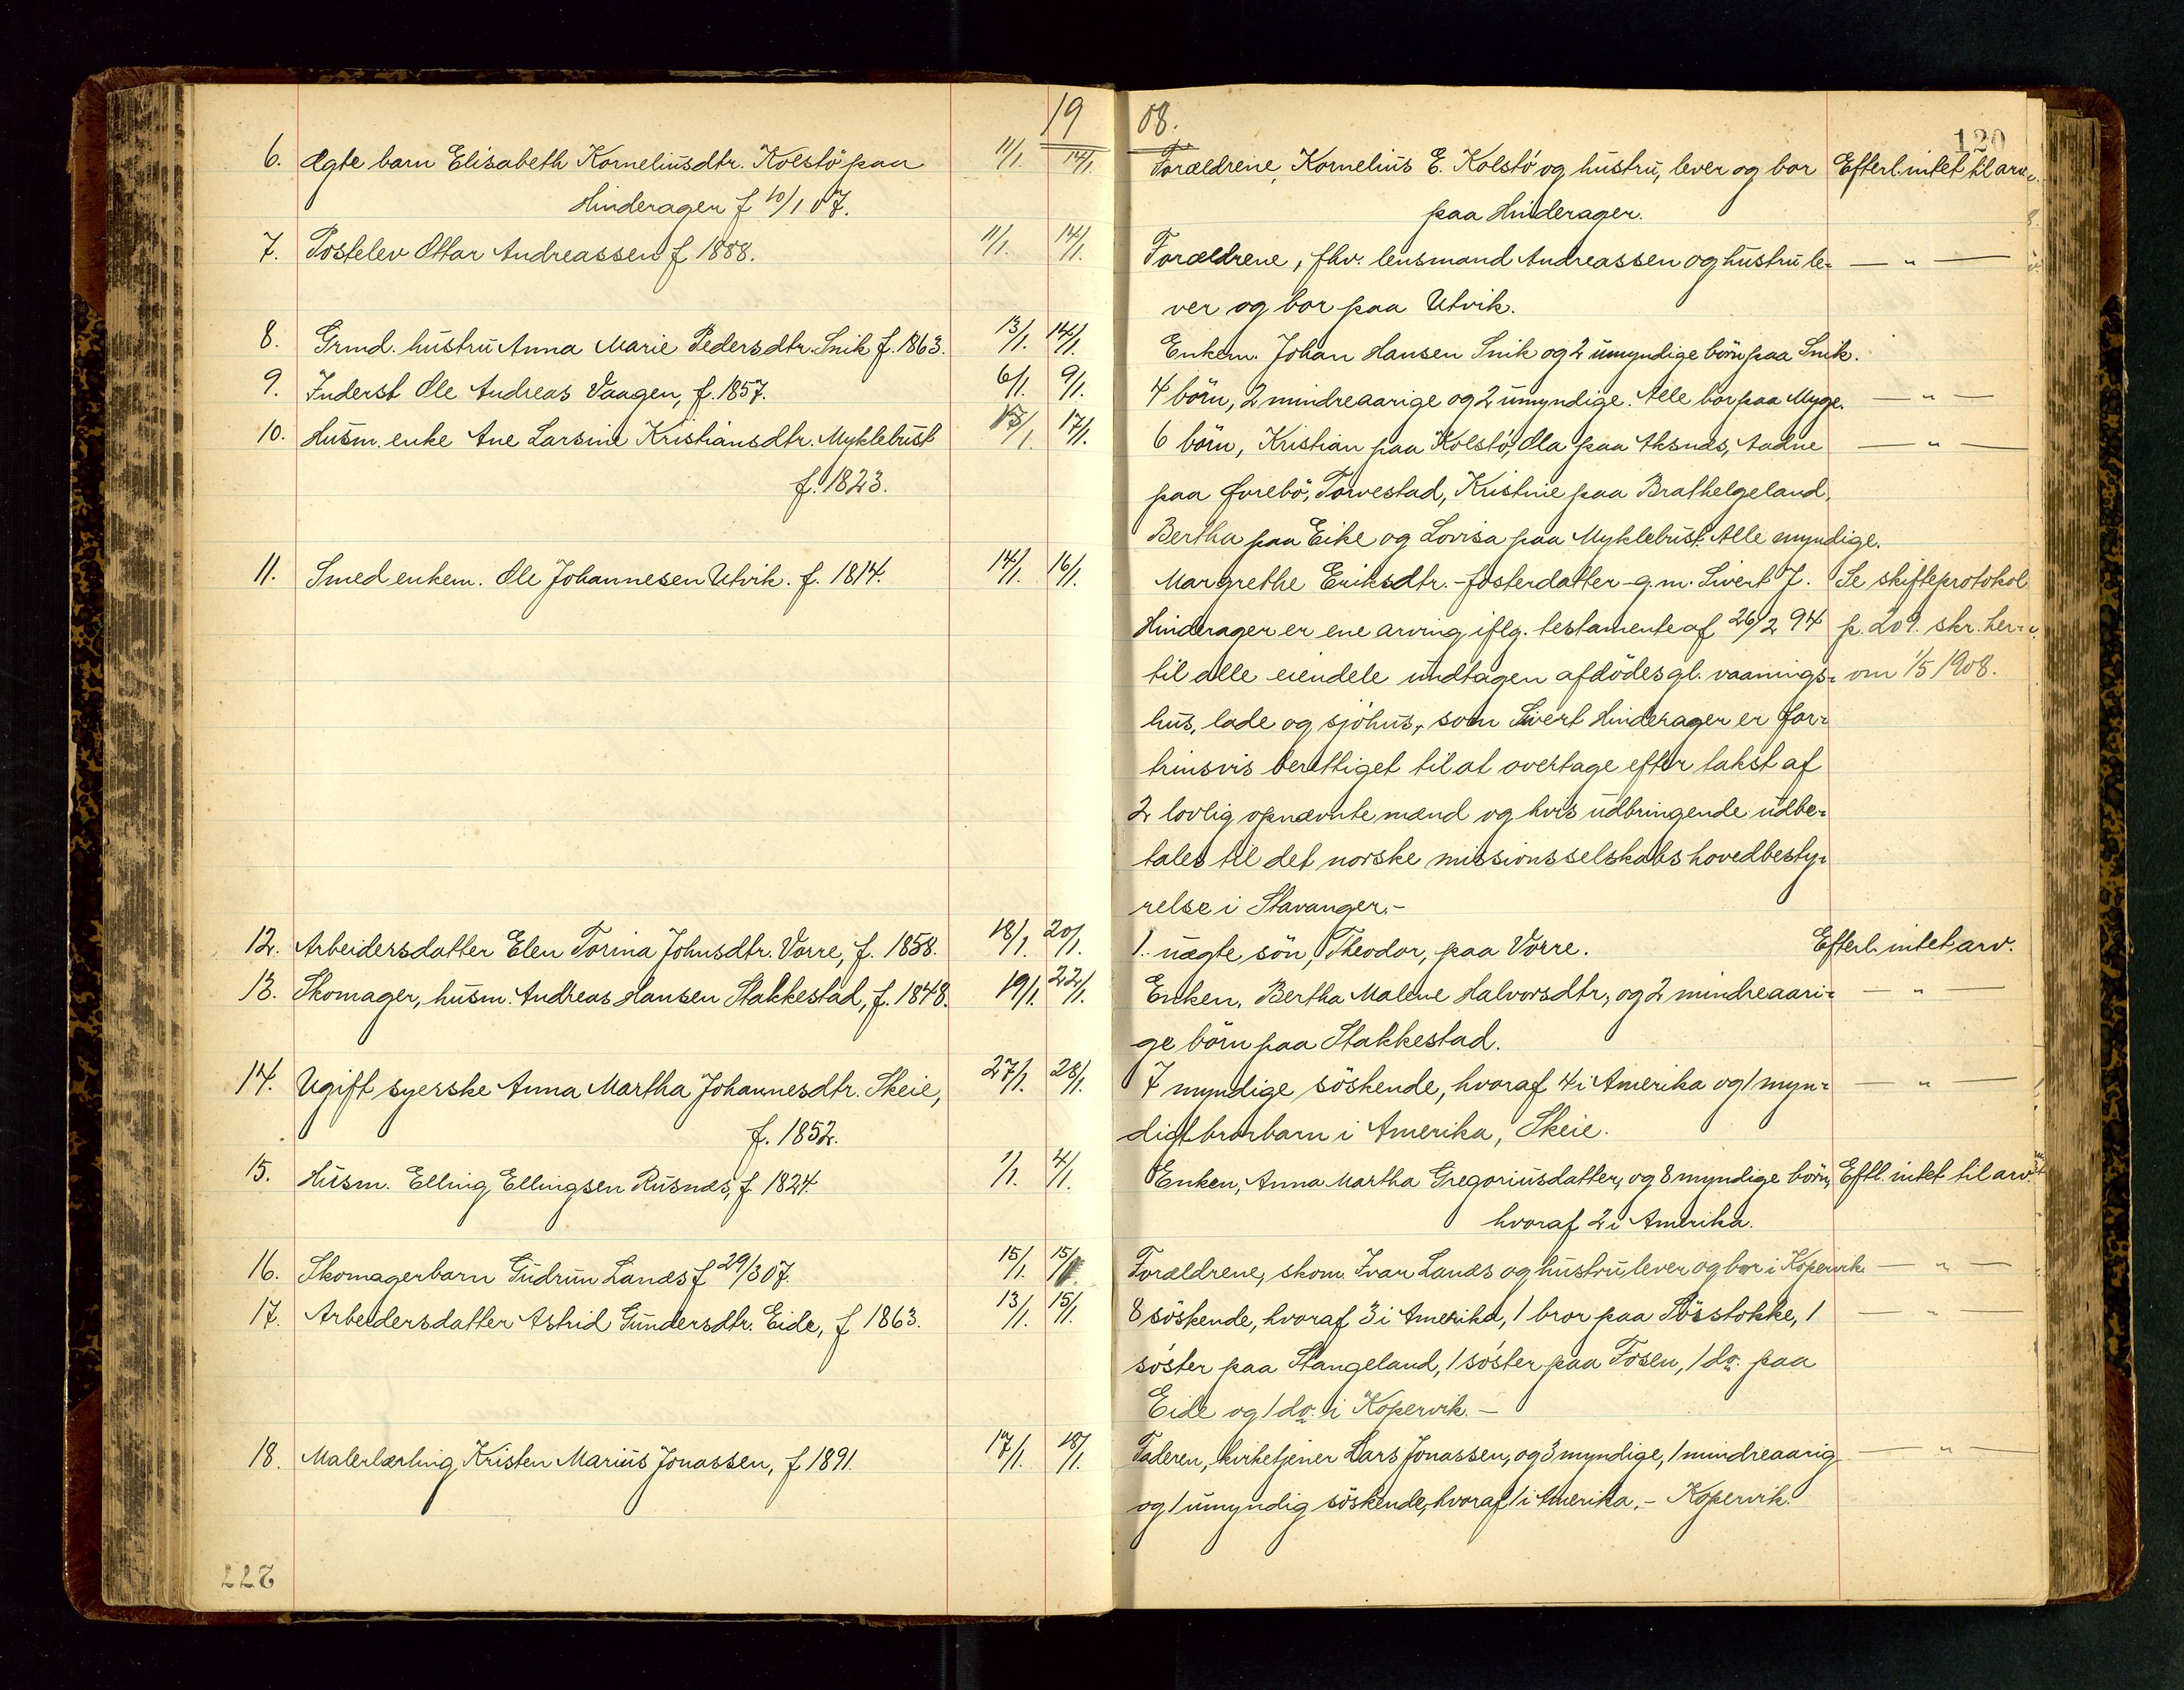 1908.
120
6. Ægte barn Elisabeth Korneliusdtr. Kolstö paa 11/1. 14/1. Forældrene, Kornelius E. Kolstö og hustru, lever og bor Efterl. intet til arv.
Hinderager f 10/1 07. paa Hinderager.
7. Postelev Ottar Andreassen f 1888. 11/1. 14/1. Forældrene, fhv. lensmand Andreassen og hustru le- — " —
ver og bor paa Utvik.
8. Grmd. hustru Anna Marie Pedersdtr. Snik f. 1863. 13/1. 14/1. Enkem. Johan Hansen Snik og 2 umyndige börn paa Snik.
9. Inderst Ole Andreas Vaagen, f. 1857. 6/1. 9/1. 4 börn, 2 mindreaarige og 2 umyndige. Alle bor paa Myge. — " —
10. Husm. enke Ane Larsine Kristiansdtr. Myklebust 15/1. 17/1. 6 börn, Kristian paa Kolstö, Ola paa Aksnes, Aadne — " —
f. 1823. paa Örebö, Torvestad, Kristine paa Brathelgeland,
Bertha paa Eike og Lovisa paa Myklebust. Alle myndige.
11. Smed enkem. Ole Johannesen Utvik. f. 1814. 14/1. 16/1. Margrethe Eriksdtr. - fosterdatter - g.m. Sivert J. Se skifteprotokol
Hinderager er ene arving iflg. testamente af 26/2 94 p. 209. skr. her-
til alle eiendele undtagen afdödes gl. vaanings- om 1/5 1908.
hus, lade og sjöhus, som Sivert Hinderager er for-
trinsvis berettiget til at overtage efter takst af
2 lovlig opnævnte mænd og hvis udbringende udbe-
tales til det norske missionsselskabs hovedbesty-
relse i Stavanger.-
12. Arbeidersdatter Elen Torina Johnsdtr. Vorre, f. 1858. 18/1. 20/1. 1 uægte sön, Theodor, paa Vorre. Efterl. intet arv.
13. Skomager, husm. Andreas Hansen Stakkestad, f. 1848. 19/1. 22/1. Enken, Bertha Malene Halvorsdtr, og 2 mindreaari- — " —
ge börn paa Stakkestad.
14. Ugift syerske Anna Martha Johannesdtr. Skeie, 27/1. 28/1. 7 myndige söskende, hvoraf 4 i Amerika og 1 myn- — " —
f. 1852. digt brorbarn i Amerika, Skeie.
15. Husm. Elling Ellingsen Rusnes, f. 1824. 1/1. 4/1. Enken, Anna Martha Gregoriusdatter, og 8 myndige börn, Eftl. intet til arv.
hvoraf 2 i Amerika.
16. Skomagerbarn Gudrun Landsf 29/3 07. 15/1. 15/1. Forældrene, skom. Ivar Lands og hustru lever og bor i Kopervik — " —
17. Arbeidersdatter Astrid Gundersdtr. Eide, f 1863. 13/1. 15/1. 8 söskende, hvoraf 3 i Amerika, 1 bror paa Fösstokke, 1 — " —
söster paa Stangeland, 1 söster paa Fosen, 1 do. paa
Eide og 1 do. i Kopervik. -
18. Malerlærling Kristen Marius Jonassen, f 1891. 17/1. 18/1. Faderen, kirketjener Lars Jonassen, og 3 myndige, 1 mindreaarig — " —
og 1 umyndig söskende, hvoraf 1 i Amerika. - Kopervik.